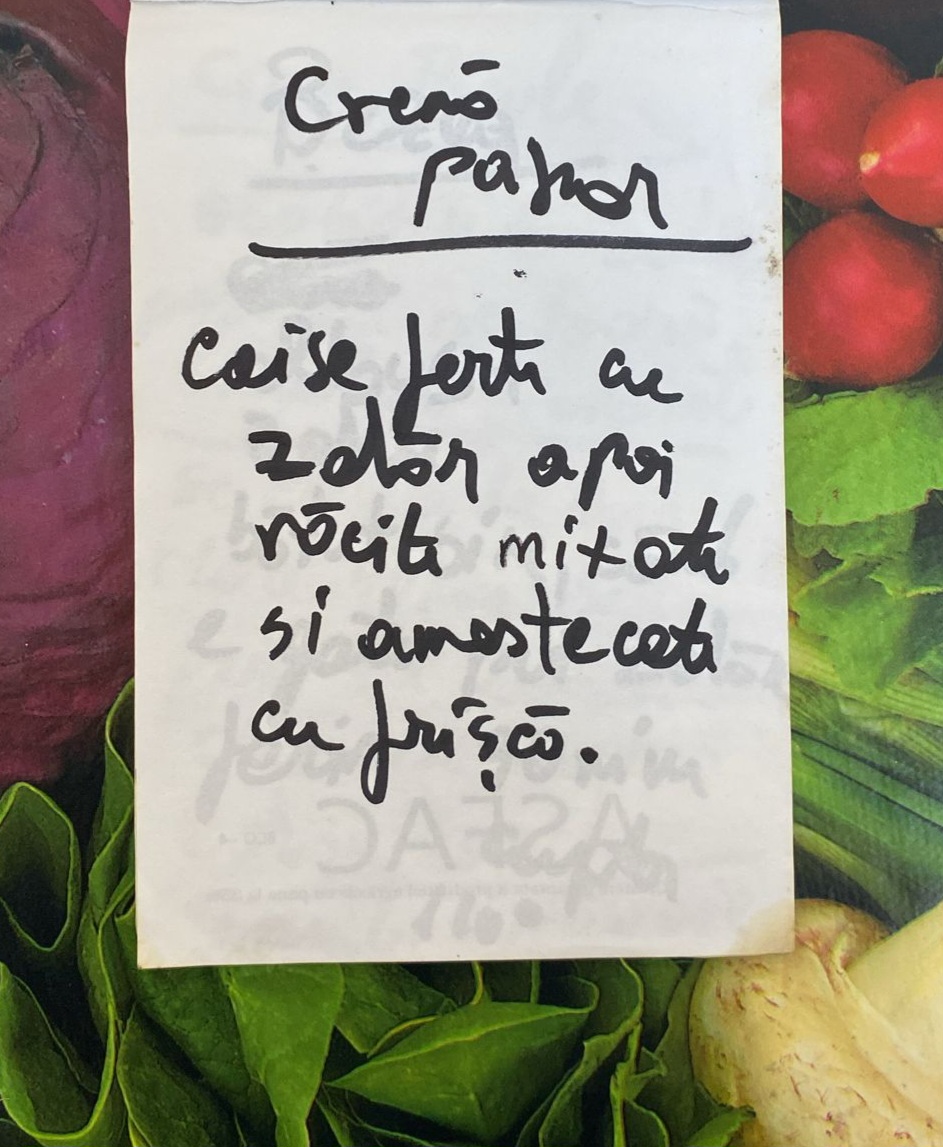 Cremă
pahar
caise fierte cu
zahăr apoi
răcite mixate
si amestecate
cu frișcă.